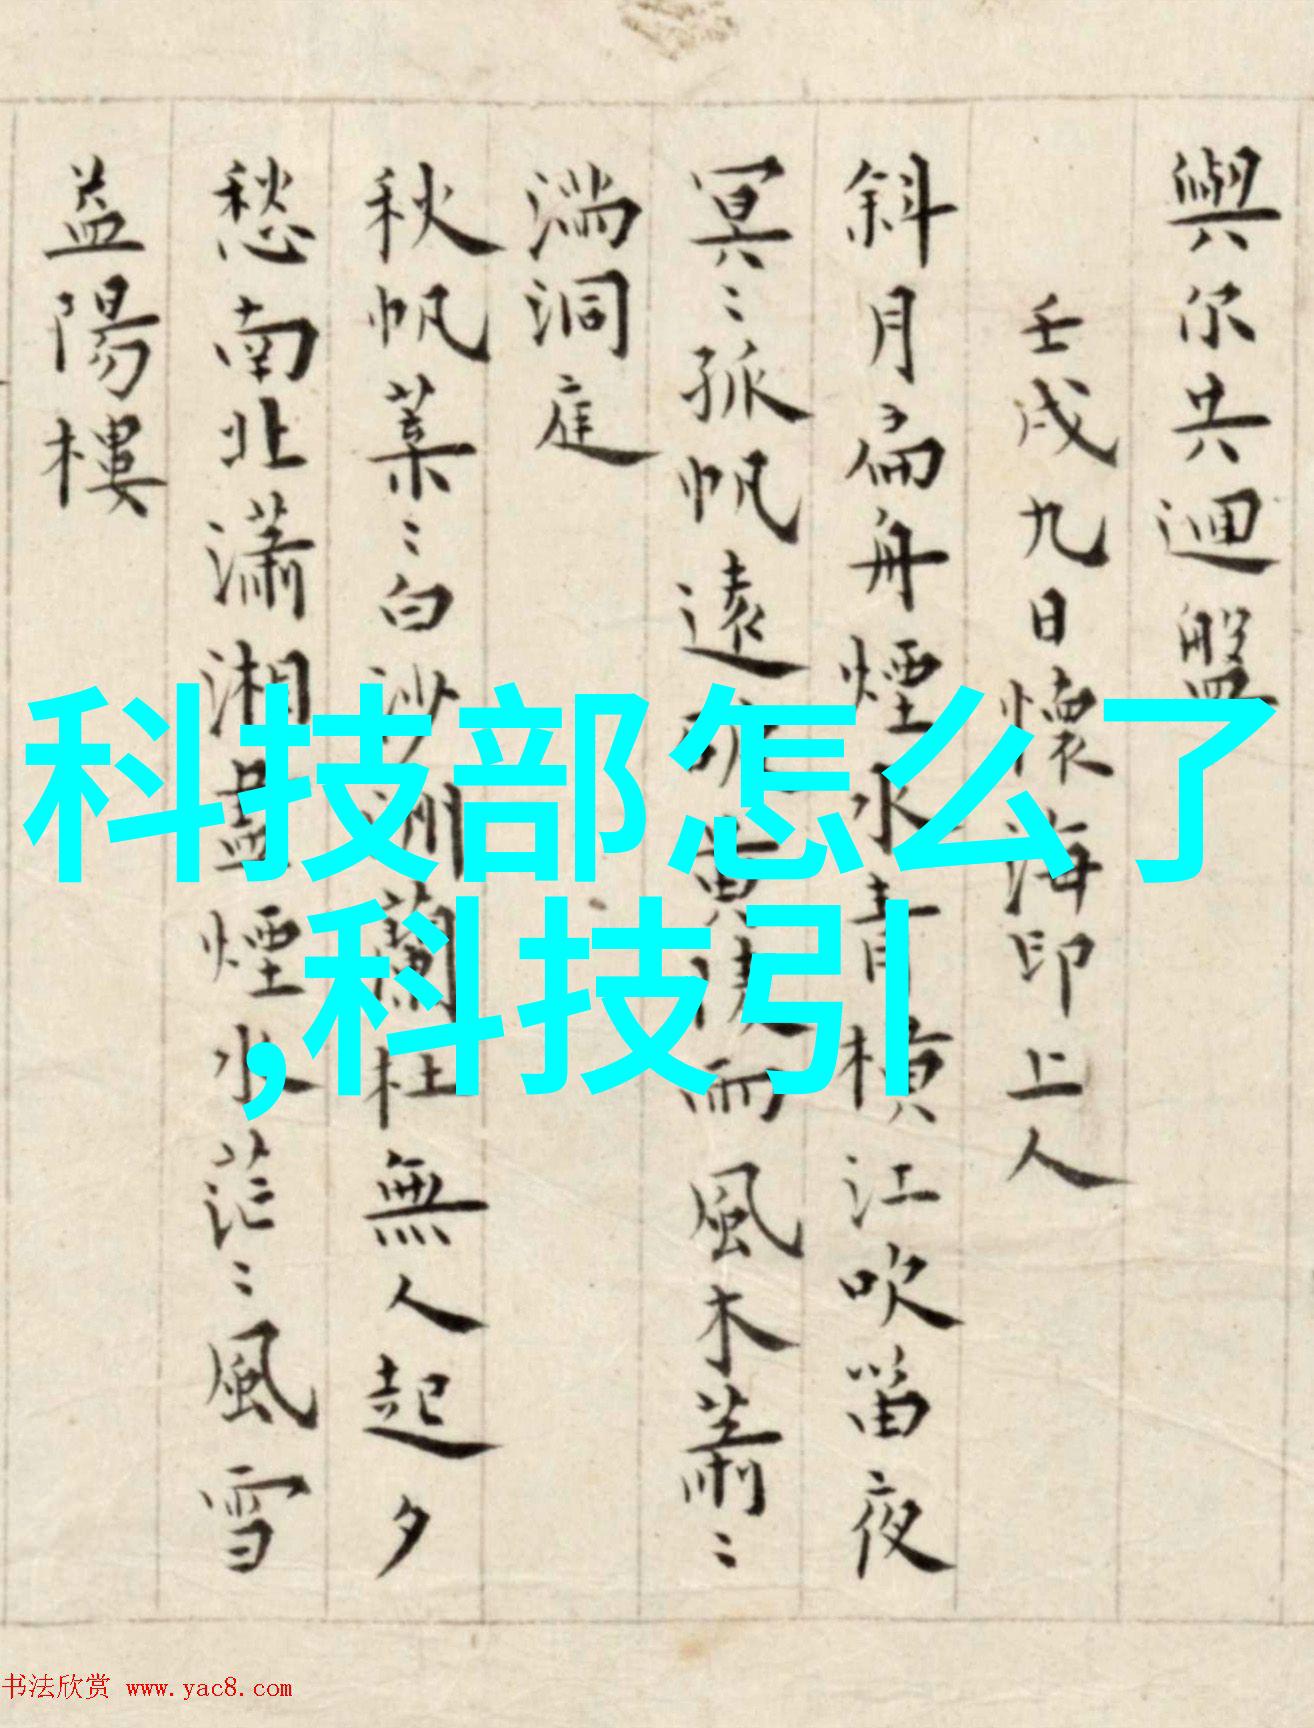 與尔共迴盤
壬戌九日懷海印上人
斜月扁舟煙水青橫江吹笛夜
冥〻孤帆遠風木蕭〻
湍洞庭
秋帆葉〻白沙洲蘭杜無人起夕
愁南北瀟湘盡煙水茫〻風雪
益陽樓
科技部怎么了
,科技引
书法欣赏 www.yac8.com